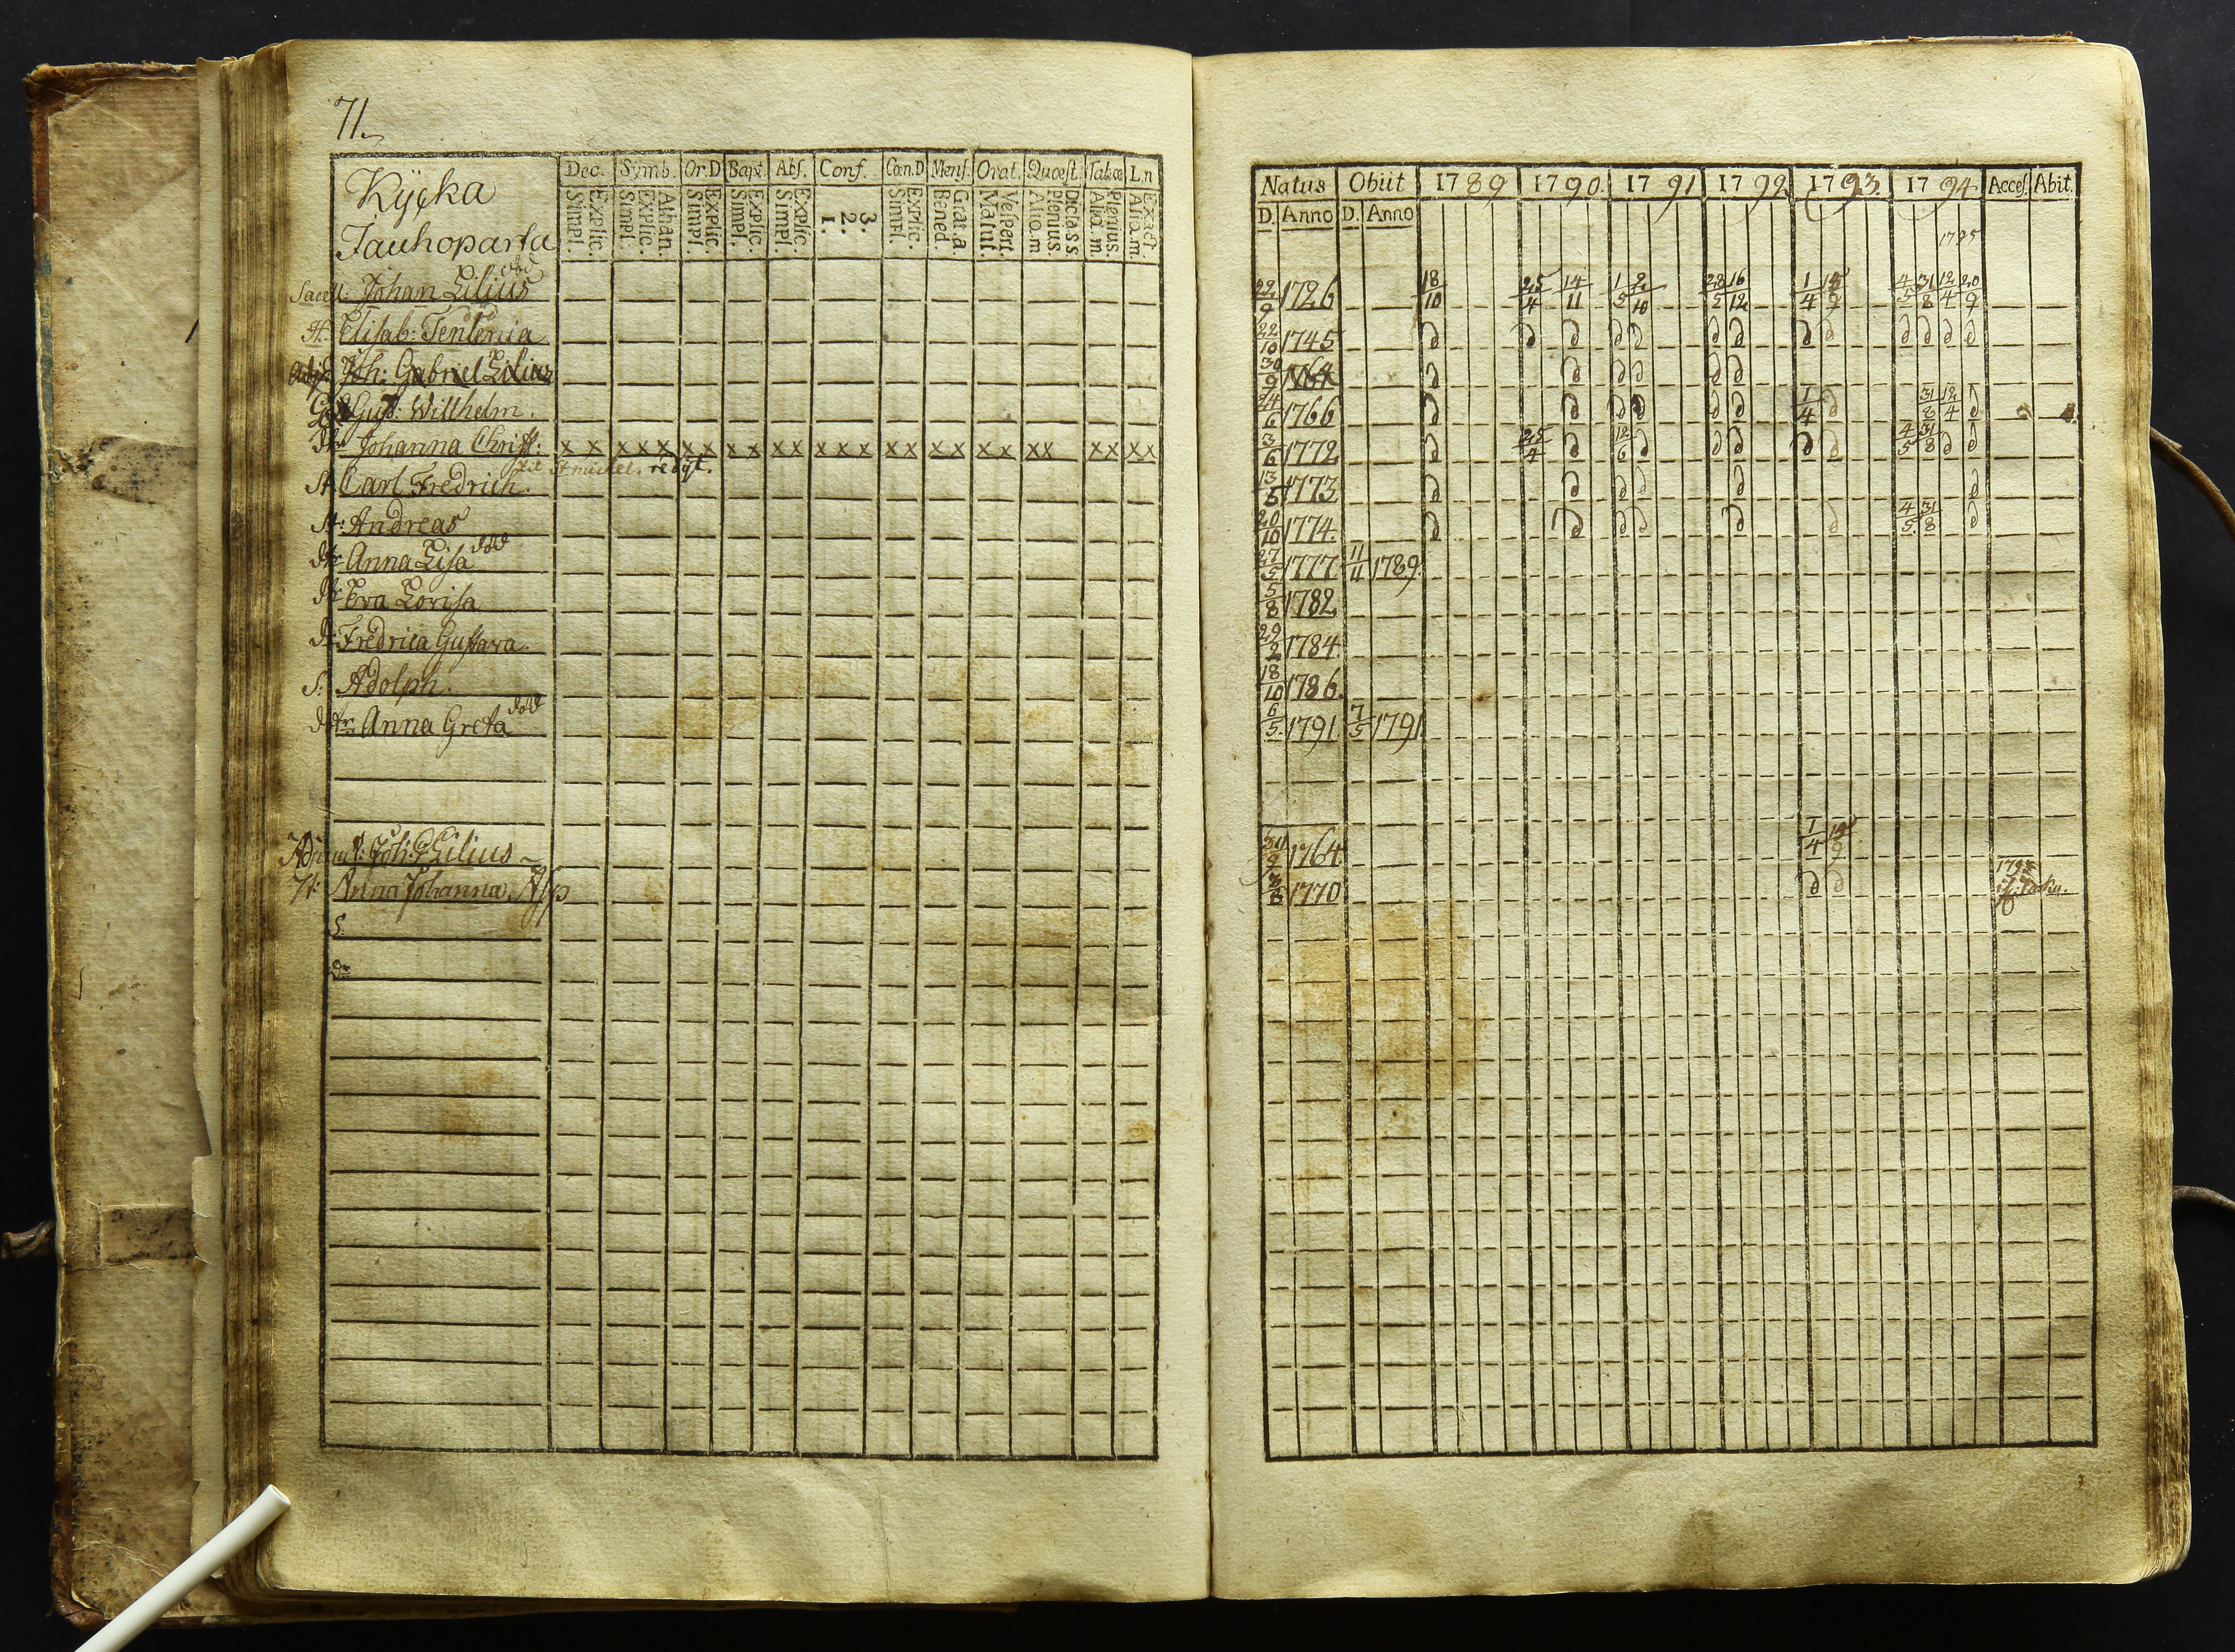 71.
Dec. Symb. Or.D Bapt. Abs. Conf. Cœn.D Mens. Orat. Quæst. Tab.œ L.n
Kycka
Jauhoparta
Simpl. Explic. Simpl. Explic. Athan. Simpl. Explic. Simpl. Explic. Simpl. Explic. 1. 2. 3. Simpl. Explic. Bened. Grat.a Matut. Vespert. Alio.m Plenius. Dictass Alio.m Plenius. Alio.m Exact.
Sacell: Johan Lilius död
H. Elisab: Tenlenia död
Adj. Joh: Gabriel Lilius
Gust: Willhelm.
Dr Johanna Christ: x x x x x x x x x x x x x x x x x x x x x x x x x x
St. Carl Fredrich.
St: Andreas
Dr Anna Lisa död
Dr Eva Lovisa
D: Fredrica Gustava
S: Adolph.
Dtr Anna Greta död
Adjunct: Joh: G Lilius
H: Anna Johanna Asp
S:
Dr
Natus Obiit 1789 1790. 1791 1792 1793 1794 Acces. Abit.
D. Anno D. Anno
1795
22/9 1726 18/10 25/4 14/11 1/5 2/10 28/5 16/12 1/4 15/9 4/5 31/8 12/4 20/9
22/10 1745 d d d d d d d d d d d d d
30/9 1764 d d d d d d
24/6 1766 d d d d d d 1/4 d 31/8 12/4 d
3/6 1772 d 25/4 d 12/6 d d d d d 4/5 31/8 d d
13/6 1773 d d d d d d
20/10 1774. d d d d d d 4/5 31/8 d
27/5 1777 11/11 1789.
5/8 1782
29/2 1784
18/10 1786.
6/5 1791 7/5 1791
30/9 1764 1/4 15/9
3/8 1770 d d